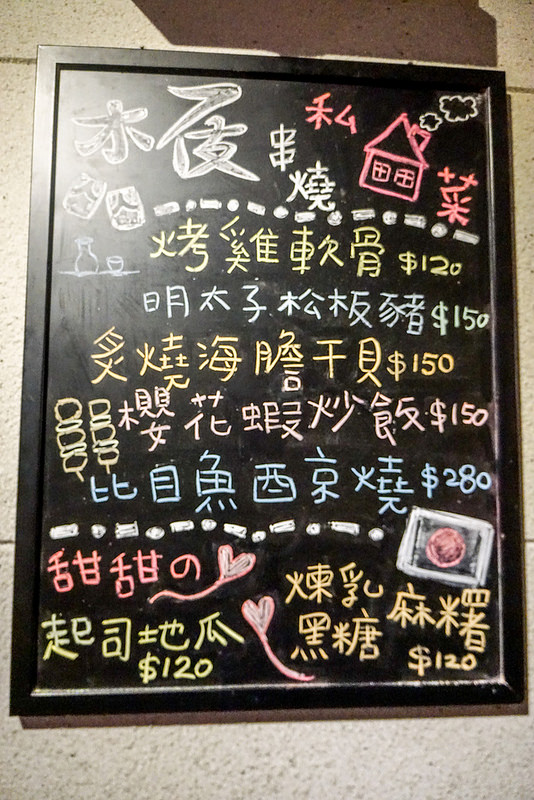 串燒
私
菜
烤雞軟骨 $120
明太子松板豬 $150
炙燒海膽干貝 $150
櫻花蝦炒飯 $150
比目魚西京燒 $280
甜甜の
起司地瓜
$120
煉乳
黑糖
麻糬
$120